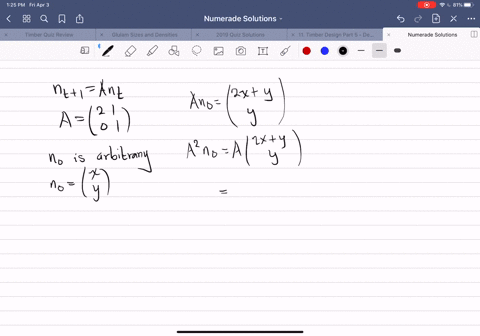 1:25 PM Fri Apr 3
81%
Numerade Solutions
Timber Quiz Review
Glulam Sizes and Densities
2019 Quiz Solutions
11 Timber Design Part 5 – De...
Numerade Solutions
n_{t+1} = A n_t
A = \begin{pmatrix} 2 & 1 \\ 0 & 1 \end{pmatrix}
n_0 is arbitrary
n_0 = \begin{pmatrix} x \\ y \end{pmatrix}
A n_0 = \begin{pmatrix} 2x+y \\ y \end{pmatrix}
A^2 n_0 = A \begin{pmatrix} 2x+y \\ y \end{pmatrix}
=